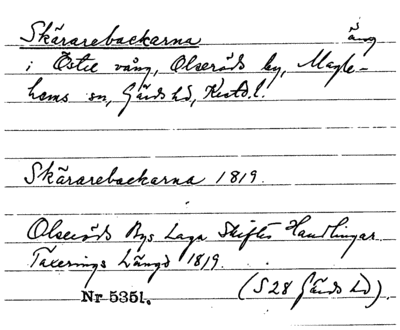 Skärarebackarna äng
i Östre vång, Olseröds by, Magle-
hems sn, Gärds hd, Krstd. l.
Skärarebackarna 1819.
Olseröds Bys Laga Skiftes Handlingar
Taxerings Längd 1819.
Nr 5351. (S 28 Gärds hd).